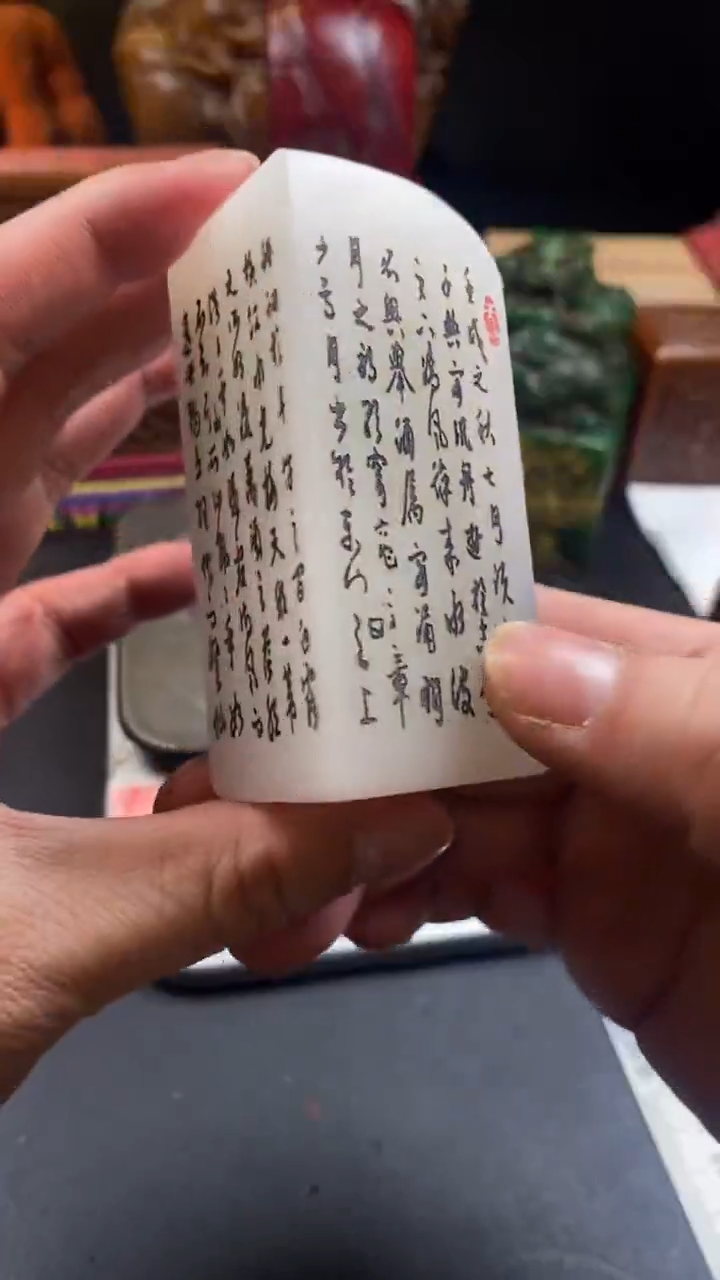 壬戌之秋七月既
子與客泛舟遊於赤
之下清風徐來水波
不興舉酒屬客誦明
月之詩歌窈窕之章
少焉月出於東山之上
徘徊於斗牛之間白露
橫江水光接天縱一葦
之所如凌萬頃之茫然
浩浩乎如馮虛御風
而不知其所止
遺世獨立羽化而登仙